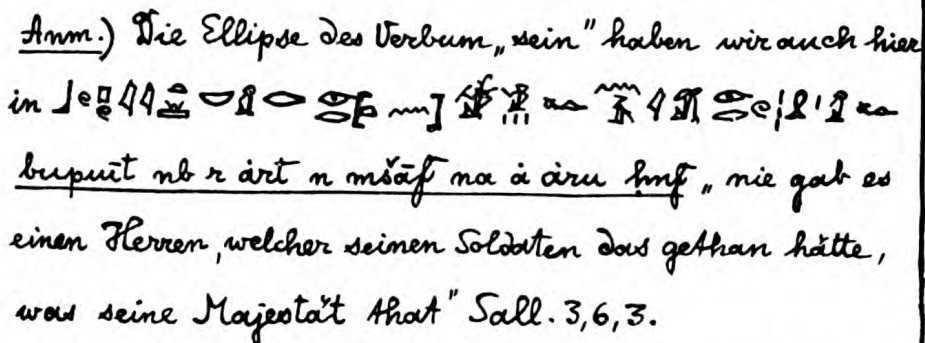 Anm.) Die Ellipse des Verbum „sein" haben wir auch hier
in
bupuit nb r árt n mšāf na á áru ḥmf „nie gab es
einen Herren, welcher seinen Soldaten das gethan hätte,
was seine Majestät that" Sall. 3,6,3.